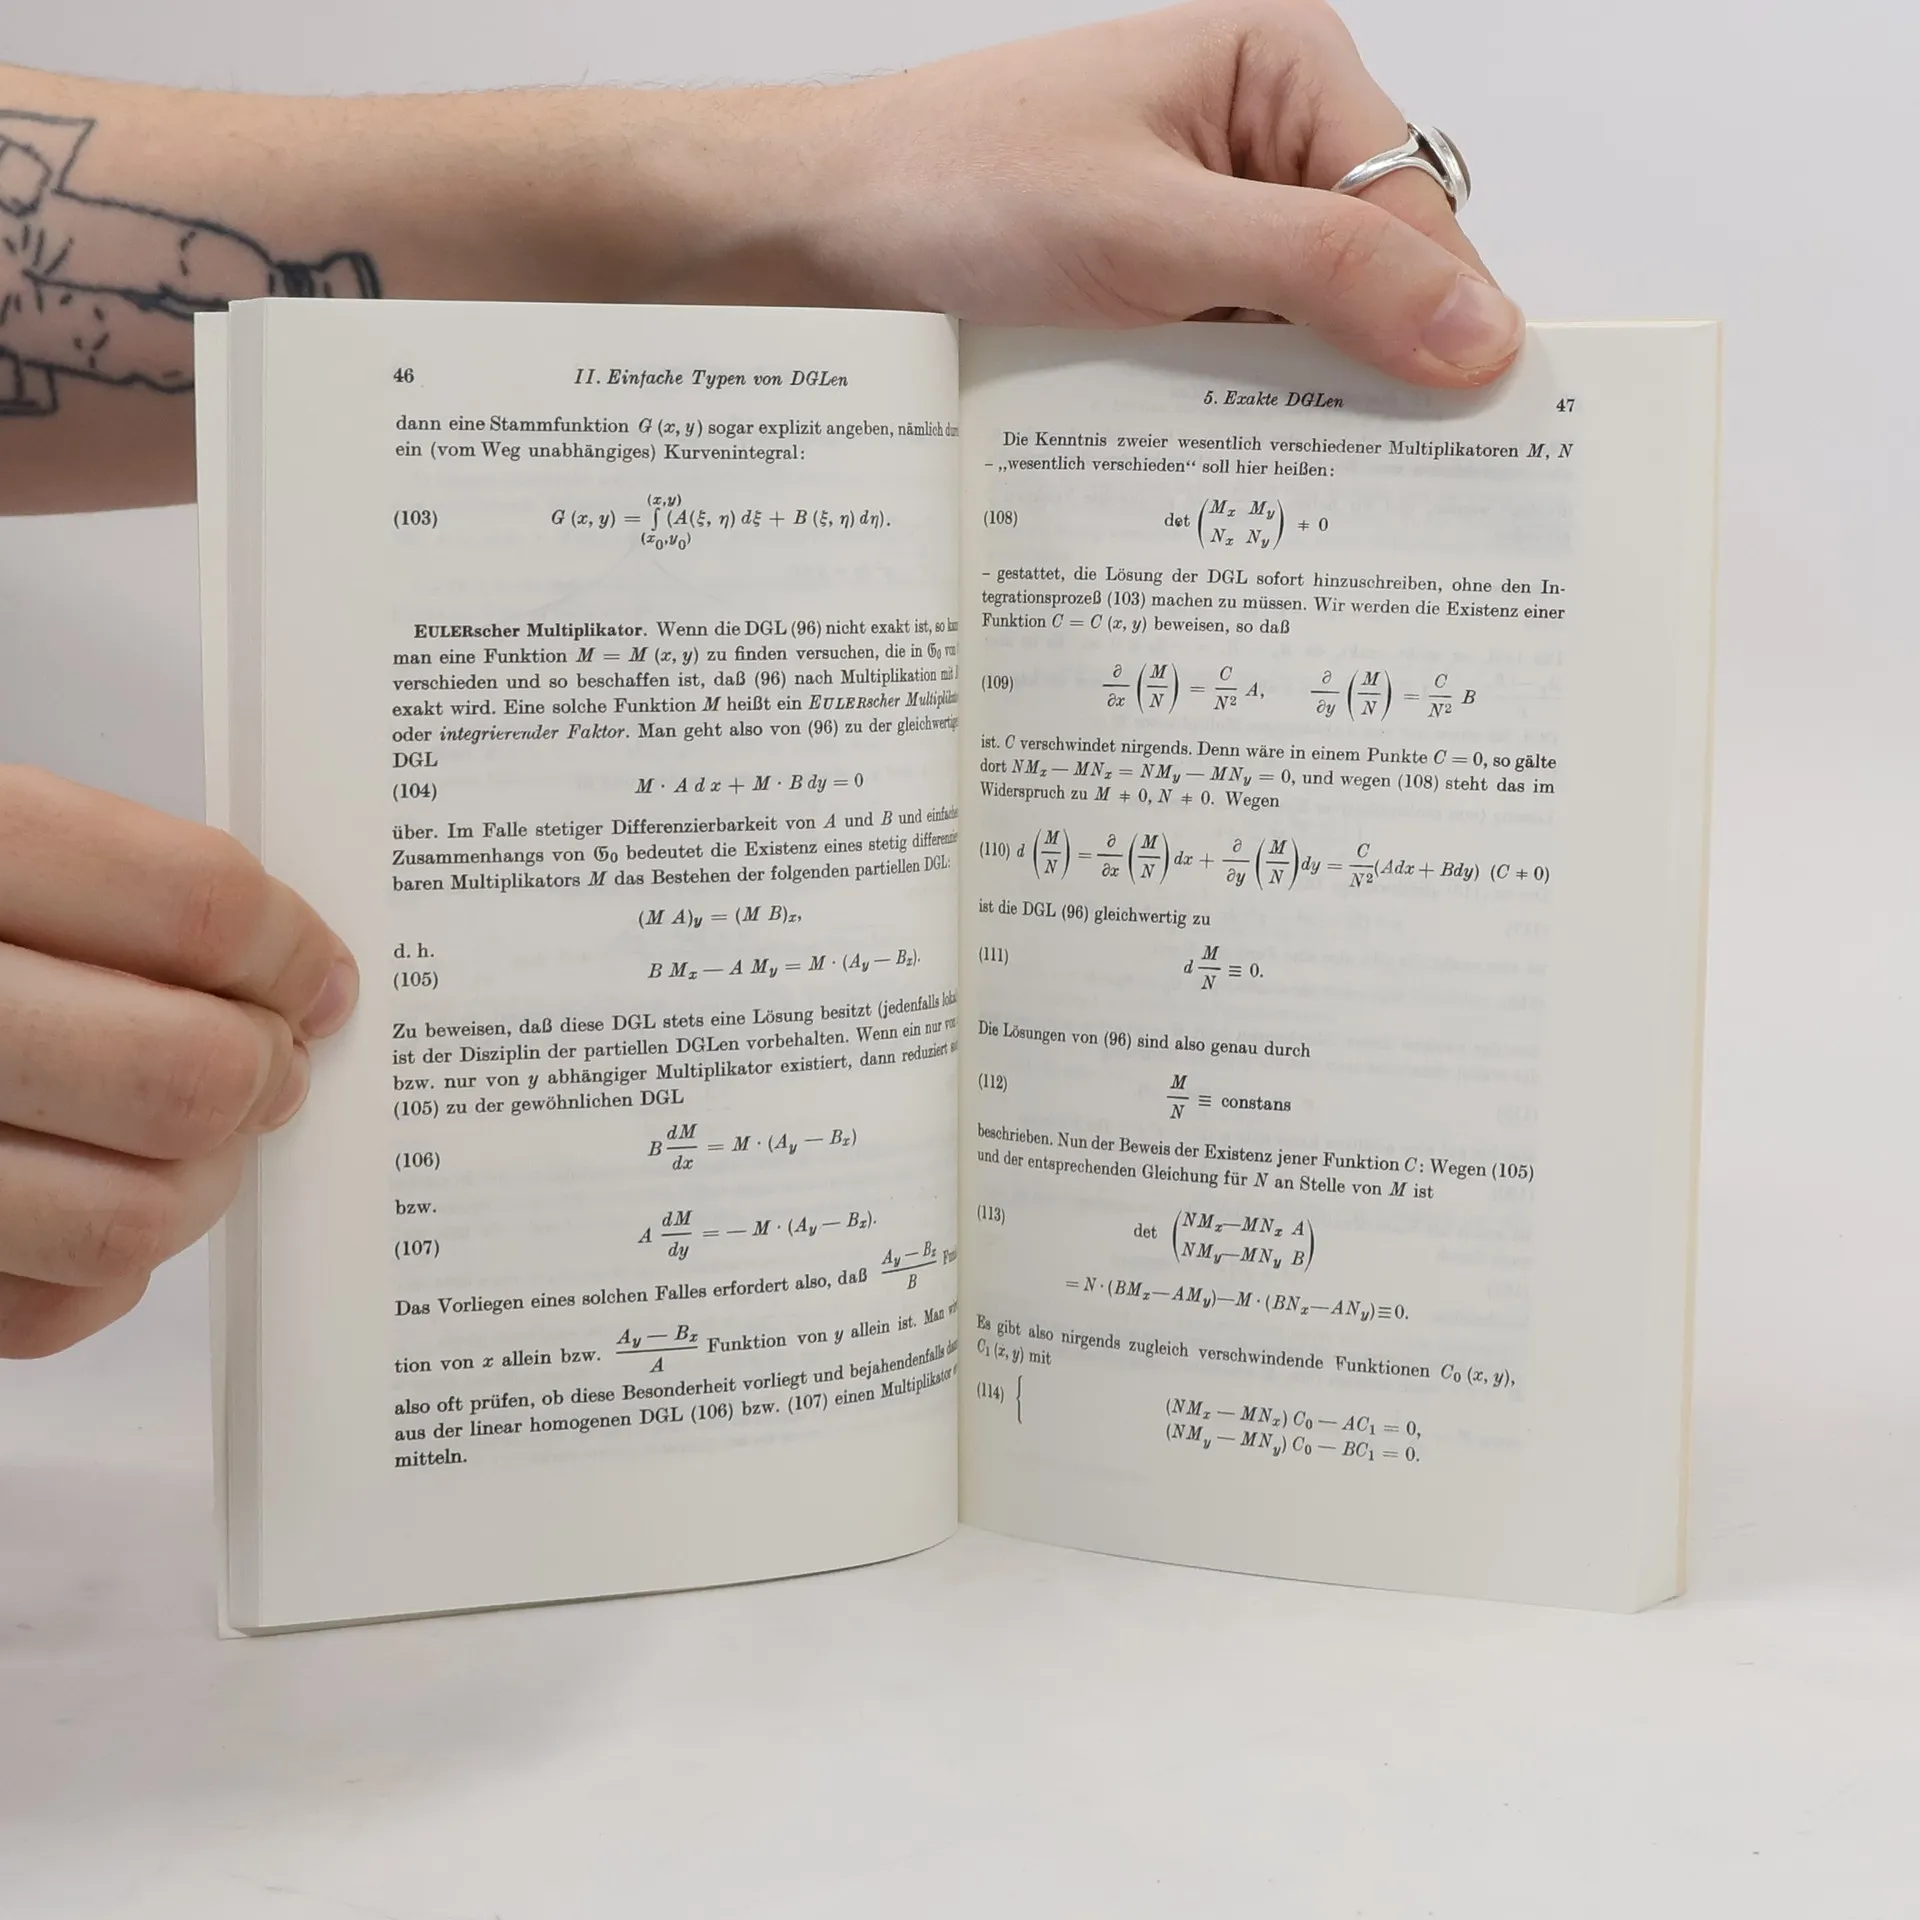 46
II. Einfache Typen von DGLen
dann eine Stammfunktion G (x, y) sogar explizit angeben, nämlich
ein (vom Weg unabhängiges) Kurvenintegral:
(103) G (x, y) = ∫_{(x₀,y₀)}^{(x,y)} (A(ξ, η) dξ + B (ξ, η) dη).
EULERscher Multiplikator. Wenn die DGL (96) nicht exakt ist, so
man eine Funktion M = M (x, y) zu finden versuchen, die in 𝔊₀
verschieden und so beschaffen ist, daß (96) nach Multiplikation mit
exakt wird. Eine solche Funktion M heißt ein EULERscher
oder integrierender Faktor. Man geht also von (96) zu der
DGL
(104) M · A d x + M · B dy = 0
über. Im Falle stetiger Differenzierbarkeit von A und B und
Zusammenhangs von 𝔊₀ bedeutet die Existenz eines stetig
baren Multiplikators M das Bestehen der folgenden partiellen DGL:
(M A)_y = (M B)_x,
d. h.
(105) B M_x — A M_y = M · (A_y — B_x).
Zu beweisen, daß diese DGL stets eine Lösung besitzt (jedenfalls
ist der Disziplin der partiellen DGLen vorbehalten. Wenn ein nur
bzw. nur von y abhängiger Multiplikator existiert, dann reduziert
(105) zu der gewöhnlichen DGL
(106) B dM/dx = M · (A_y — B_x)
bzw.
(107) A dM/dy = — M · (A_y — B_x).
Das Vorliegen eines solchen Falles erfordert also, daß (A_y — B_x)/B
tion von x allein bzw. (A_y — B_x)/A Funktion von y allein ist. Man
also oft prüfen, ob diese Besonderheit vorliegt und bejahendenfalls
aus der linear homogenen DGL (106) bzw. (107) einen Multiplikator
mitteln.
5. Exakte DGLen
47
Die Kenntnis zweier wesentlich verschiedener Multiplikatoren M, N
– „wesentlich verschieden“ soll hier heißen:
(108) det (M_x M_y; N_x N_y) ≠ 0
– gestattet, die Lösung der DGL sofort hinzuschreiben, ohne den In-
tegrationsprozeß (103) machen zu müssen. Wir werden die Existenz einer
Funktion C = C (x, y) beweisen, so daß
(109) ∂/∂x (M/N) = C/N² A, ∂/∂y (M/N) = C/N² B
ist. C verschwindet nirgends. Denn wäre in einem Punkte C = 0, so gälte
dort NM_x — MN_x = NM_y — MN_y = 0, und wegen (108) steht das im
Widerspruch zu M ≠ 0, N ≠ 0. Wegen
(110) d (M/N) = ∂/∂x (M/N) dx + ∂/∂y (M/N) dy = C/N² (Adx + Bdy) (C ≠ 0)
ist die DGL (96) gleichwertig zu
(111) d M/N ≡ 0.
Die Lösungen von (96) sind also genau durch
(112) M/N ≡ constans
beschrieben. Nun der Beweis der Existenz jener Funktion C: Wegen (105)
und der entsprechenden Gleichung für N an Stelle von M ist
(113) det (NM_x—MN_x A; NM_y—MN_y B)
= N·(BM_x—AM_y)—M·(BN_x—AN_y)≡0.
Es gibt also nirgends zugleich verschwindende Funktionen C₀ (x, y),
C₁ (x, y) mit
(114) { (NM_x — MN_x) C₀ — AC₁ = 0,
(NM_y — MN_y) C₀ — BC₁ = 0.